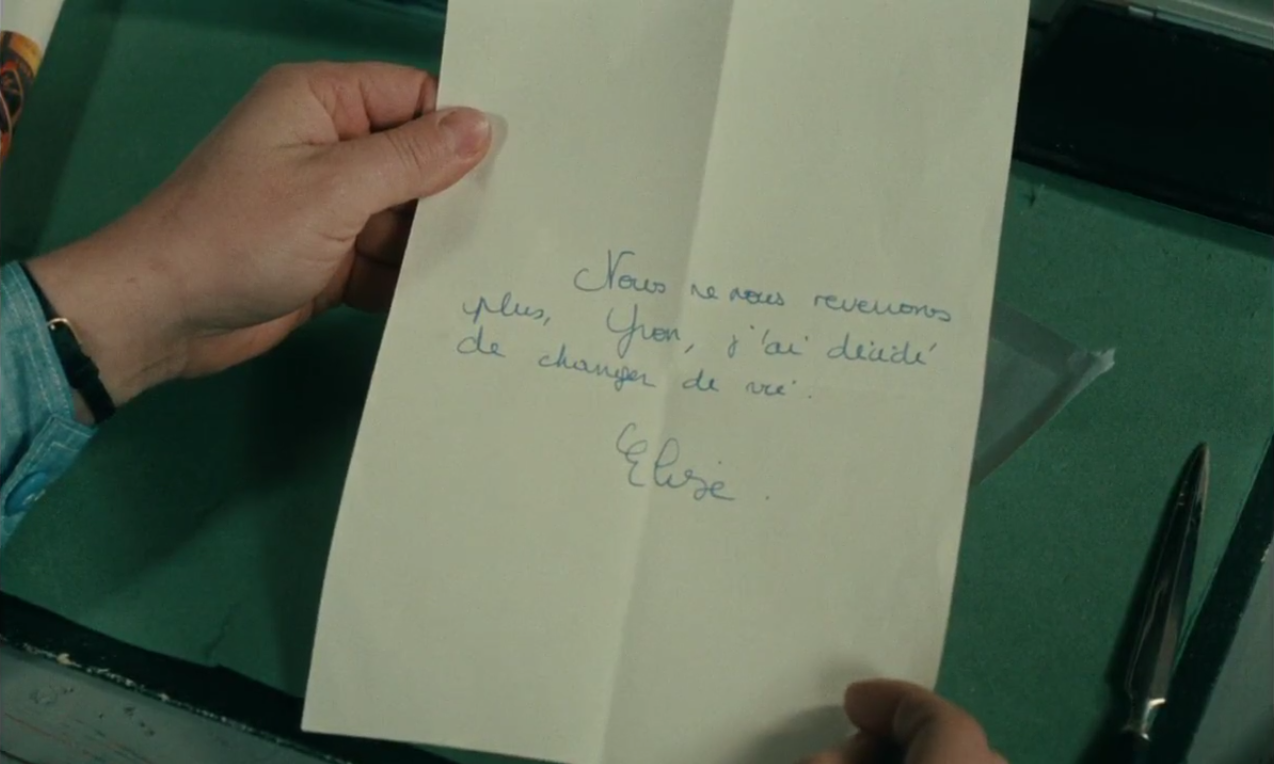 Nous ne nous reverrons
plus, Yvon, j'ai décidé
de changer de vie.
Elise.